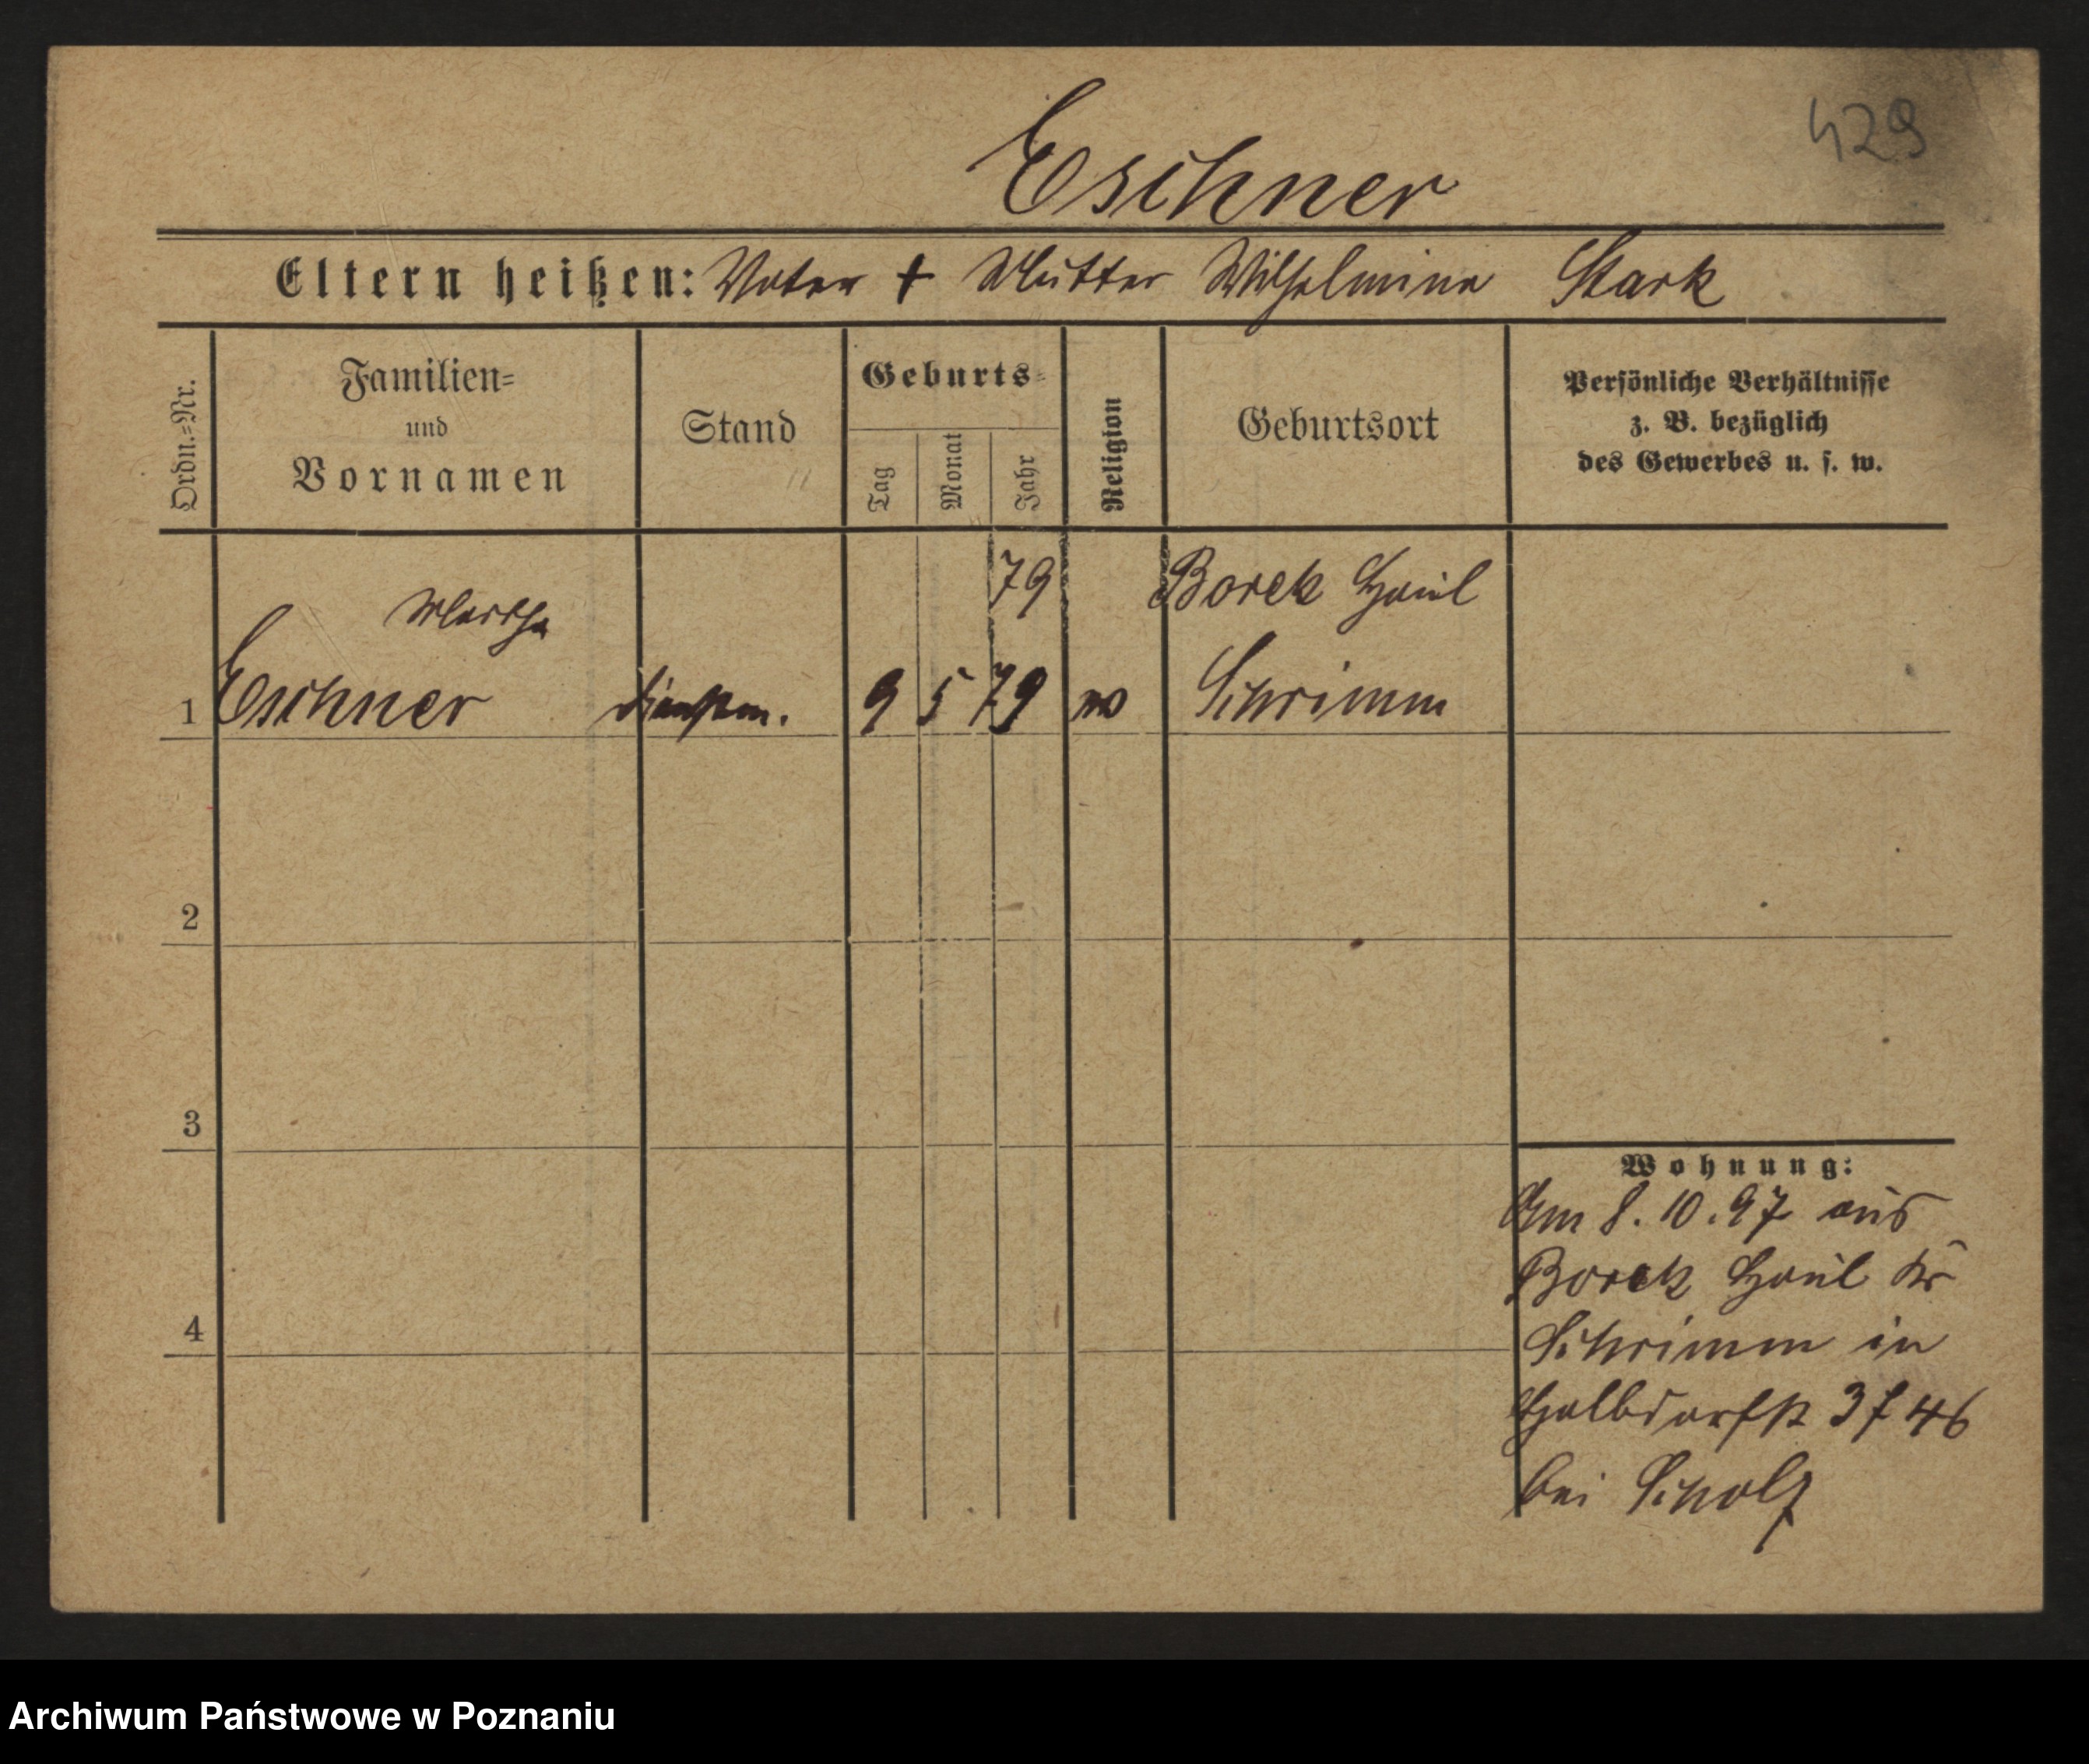 429
Eschner
Eltern heißen: Vater † Mutter Wilhelmine Stark
Ordn.=Nr.
Familien=
und
Vornamen
Stand
Geburts=
Tag
Monat
Jahr
Religion
Geburtsort
Persönliche Verhältnisse
z. B. bezüglich
des Gewerbes u. s. w.
79 Borek Haul
Martha
1 Eschner 9 5 79 Schrimm
2
3
4
Wohnung:
Am 8.10.97 aus
Borek Haul Kr
Schrimm in
Halbdorfst 37 46
bei Scholz
Archiwum Państwowe w Poznaniu